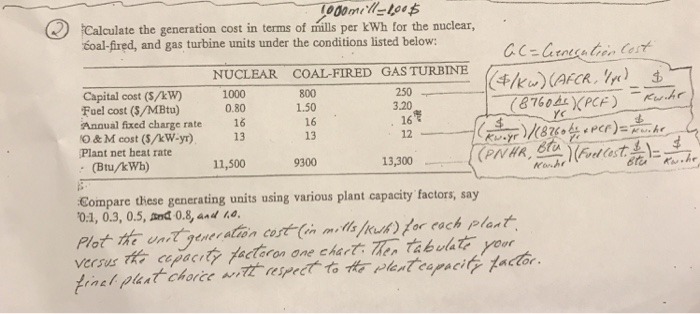 1000mill=1.00$
② Calculate the generation cost in terms of mills per kWh for the nuclear,
coal-fired, and gas turbine units under the conditions listed below:
GC = Generation Cost
NUCLEAR COAL-FIRED GAS TURBINE
Capital cost ($/kW) 1000 800 250
Fuel cost ($/MBtu) 0.80 1.50 3.20
Annual fixed charge rate 16 16 16%
O & M cost ($/kW-yr) 13 13 12
Plant net heat rate
(Btu/kWh) 11,500 9300 13,300
($/Kw)(AFCR, 1/yr) / (8760 hr/yr)(PCF) = $/Kw.hr
($/Kw.yr)/(8760 hr/yr * PCF) = $/Kw.hr
(PNHR, Btu/Kw.hr)(Fuel Cost. $/Btu) = $/Kw.hr
Compare these generating units using various plant capacity factors, say
0.1, 0.3, 0.5, and 0.8, and 1.0.
Plot the unit generation cost (in mills/kwh) for each plant,
versus the capacity factor on one chart. Then tabulate your
final plant choice with respect to the plant capacity factor.